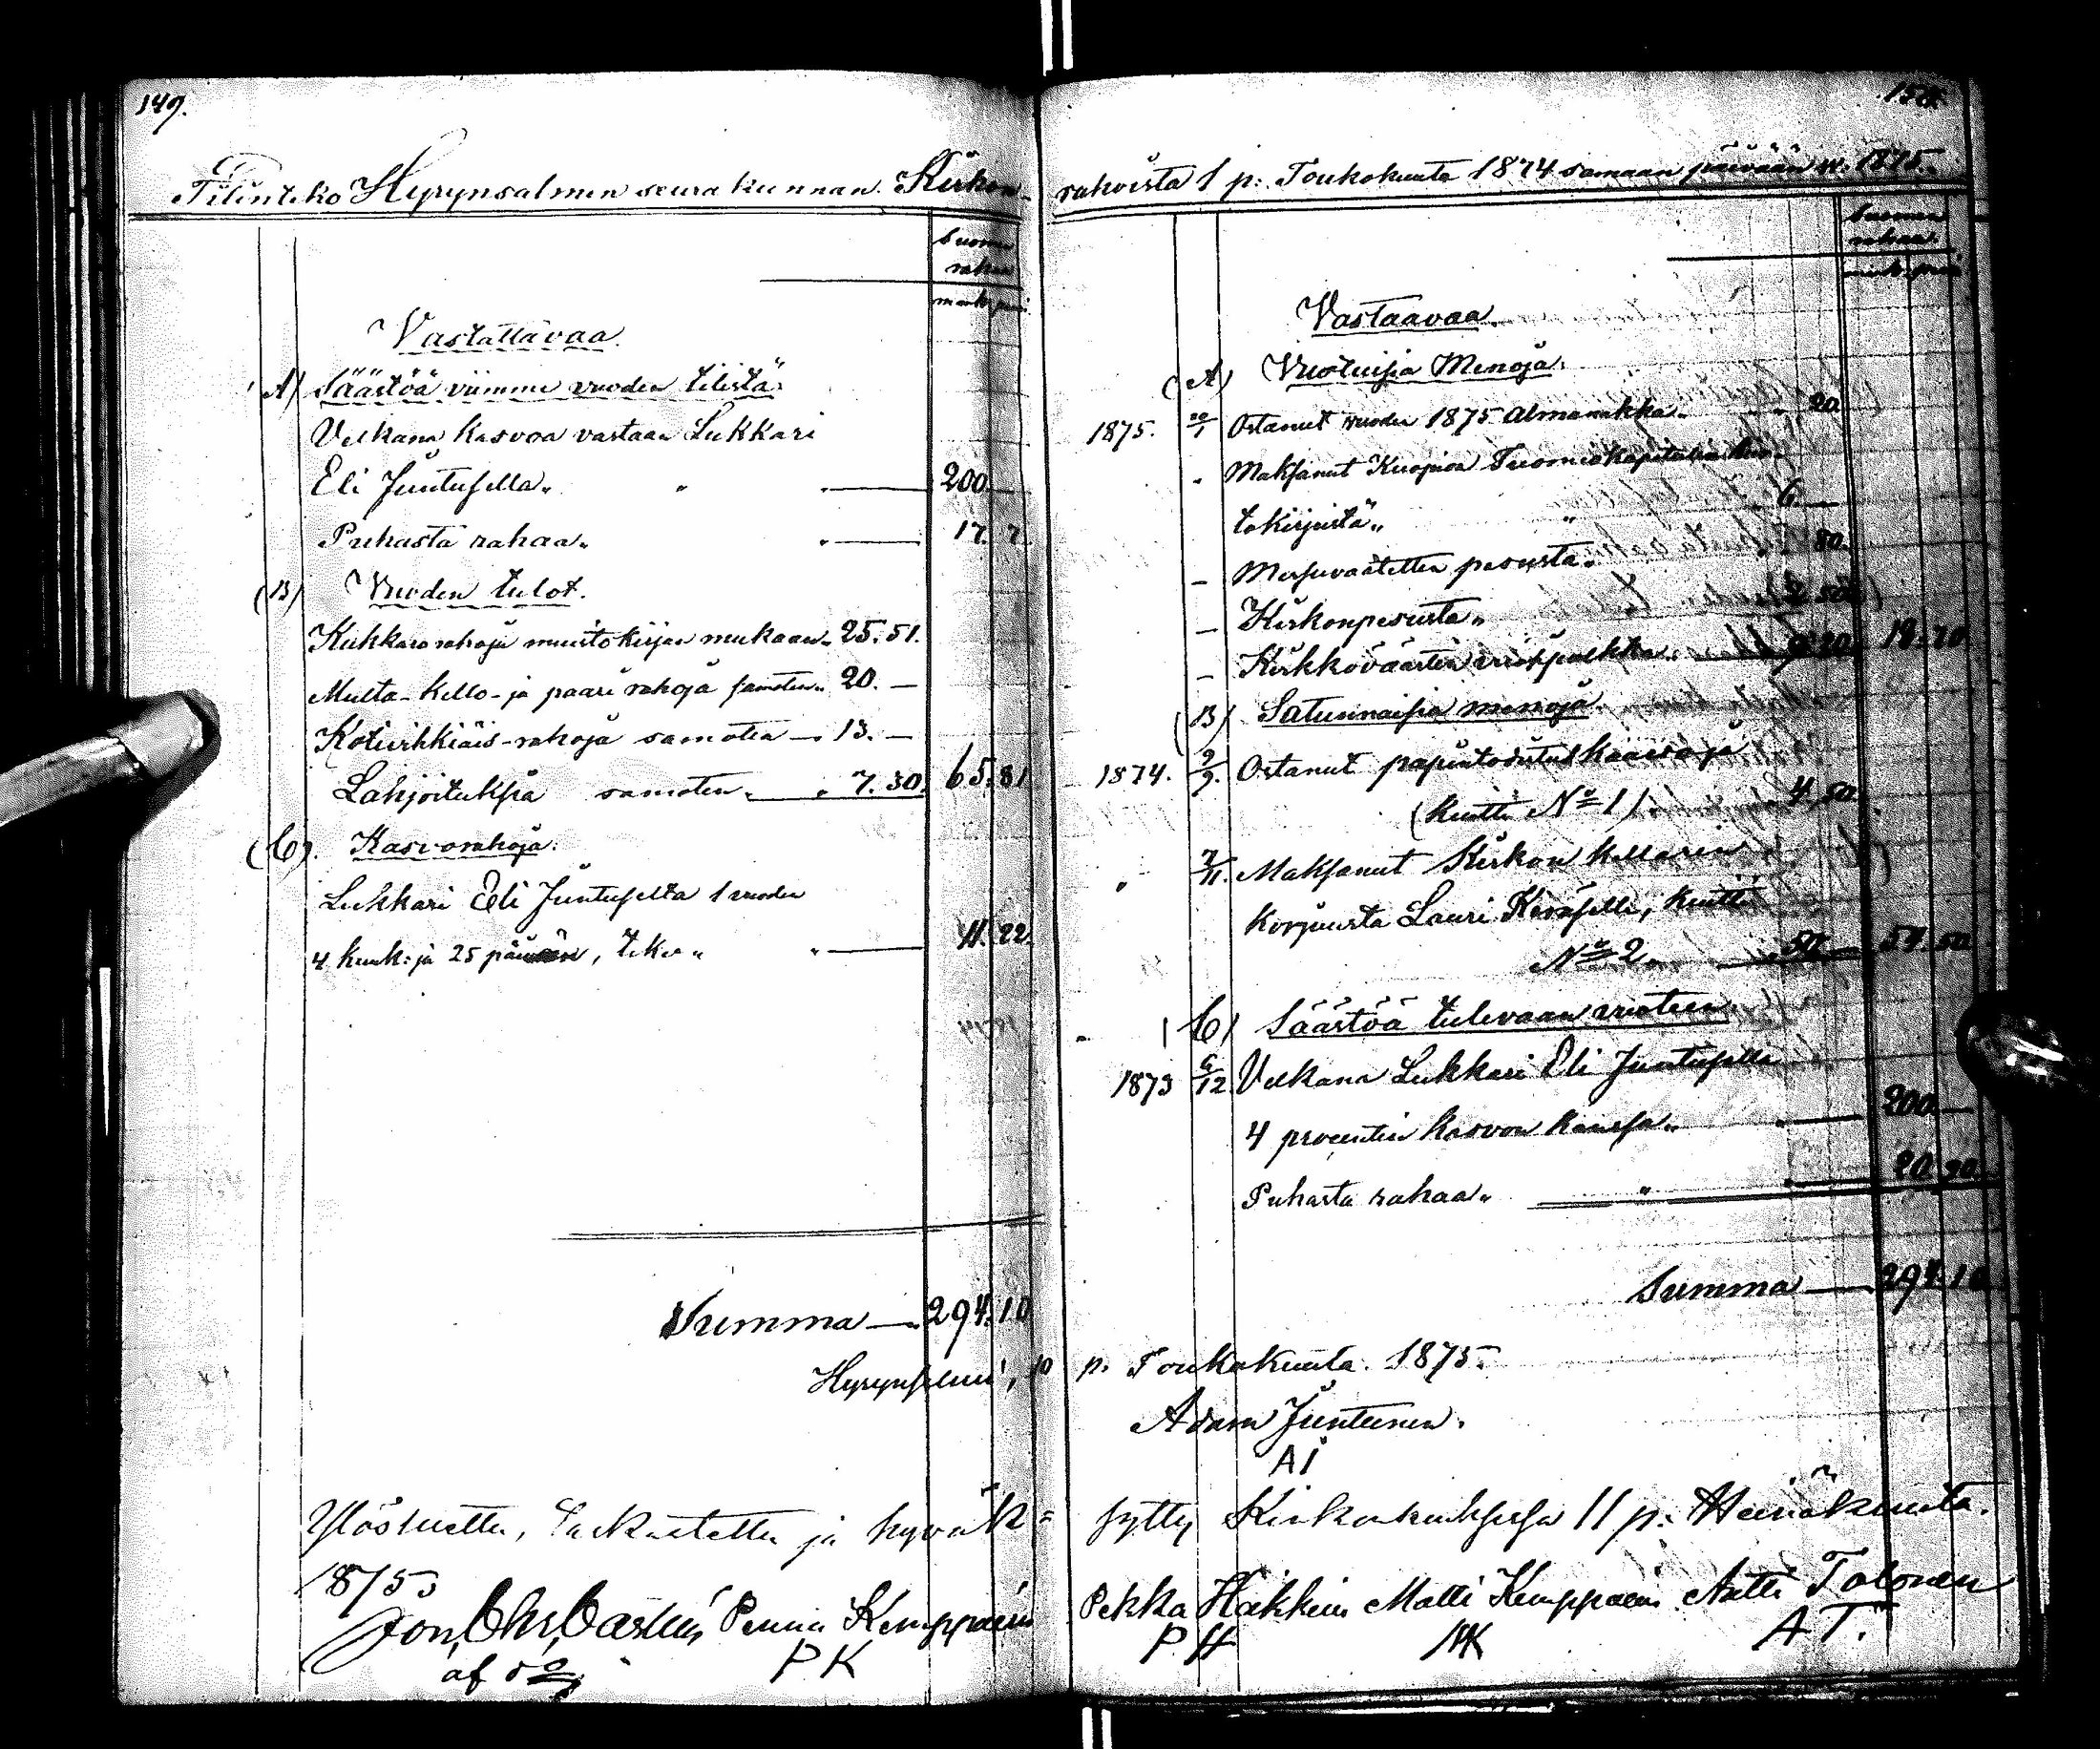 149.
Tilinteko Hyrynsalmen seurakunnan Kirkon-
Suomen
rahaa
mark. pen.
Vastattavaa.
(A) Säästöä viimme vuoden tilistä:
Velkana kasvoa vastaan Lukkari
Eli Juntusella „ „ „ — 200. —
Puhasta rahaa „ „ — 17. 7.
(B) Vuoden tulot.
Kukkaro rahoja muistokirjan mukaan „ 25. 51.
Multa- kello- ja paari rahoja samoten „ 20. —
Kotivihkiäis-rahoja samoten — „ 13. —
Lahjoituksia samoten „ — „ 7. 30. 65. 81
(C). Kasvorahoja.
Lukkari Eli Juntuselta 1 vuoden
4 kuuk: ja 25 päivän, teke „ „ — 11. 22.
Summa — 294. 10
Hyrynsalmi, 10
Ylösluettu, tarkastettu ja hyväk=
1875
Joh. Chr. Castrén Pekka Kemppainen
P K
150.
rahoista 1 p: Toukokuuta 1874 samaan päivään v: 1875.
Suomen
rahaa.
mark. pen.
Vastaavaa.
(A) Vuotuisia Menoja.
1875. 20/1 Ostanut vuoden 1875 Almanakka „ „ „ 20
„ Maksanut Kuopion Tuomiokapitulin kuu-
tokirjeistä „ „ 6. —
— Messuvaatetten pesusta „ 80.
— Kirkonpesusta „ 2. 50.
— Kirkkoväärtin vuospalkka „ 9. 20. 18. 70
(B) Satunnaisia menoja.
1874. 9/9. Ostanut papintodistus kaavoja
(kuitti No 1) 4. 50.
„ 7/11. Maksanut Kirkon kellarin
korjuusta Lauri Keräselle, kuitti
No 2. 50. — 54. 50
(C) Säästöä tulevaan vuoteen.
1873 6/12. Velkana Lukkari Eli Juntusella
4 procentin kasvon kanssa „ „ — 200. —
Puhasta rahaa „ „ 20. 90.
Summa — 294. 10
p. Toukokuuta. 1875.
Adam Juntunen.
AJ
sytty Kirkonkouksessa 11 p: Heinäkuuta.
Pekka Häkkinen Matti Kemppainen Antti Tolonen
P H MK A T.